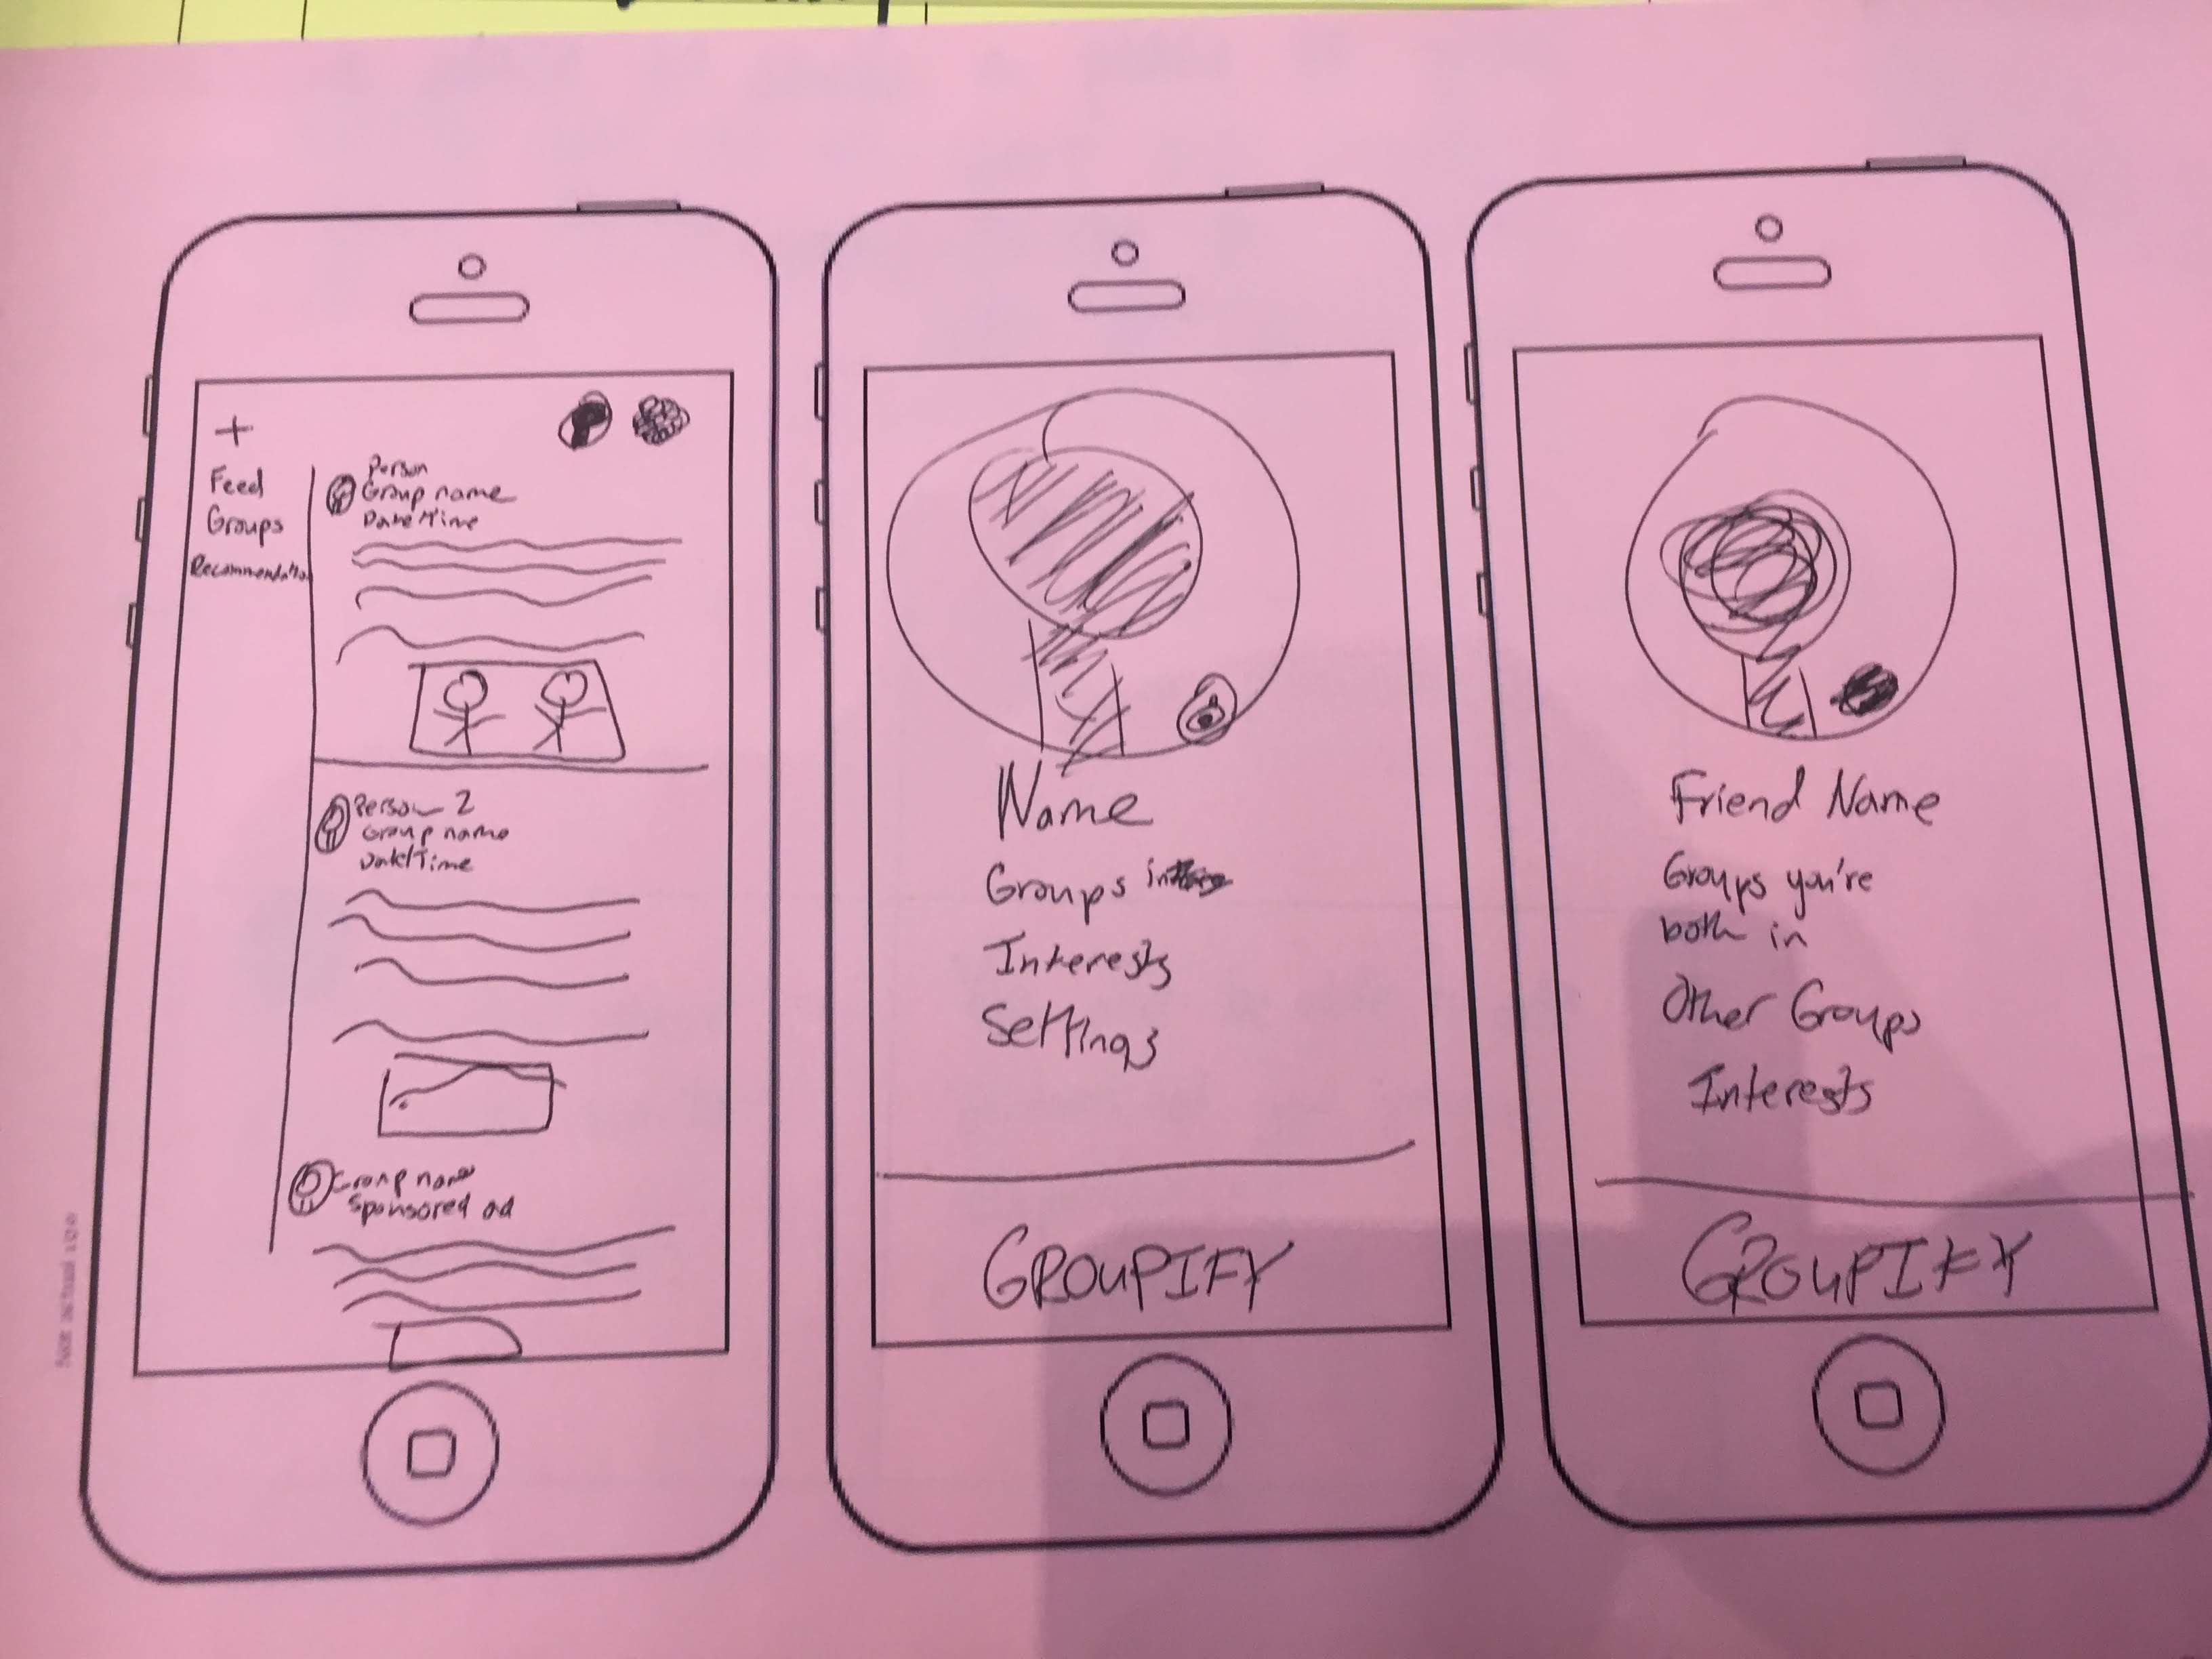 +
Feed
Groups
Recommendation
Person
Group name
Date/Time
Person 2
Group name
Date/Time
Group name
Sponsored ad
Name
Groups in
Interests
Settings
GROUPIFY
Friend Name
Groups you're
both in
Other Groups
Interests
GROUPIFY